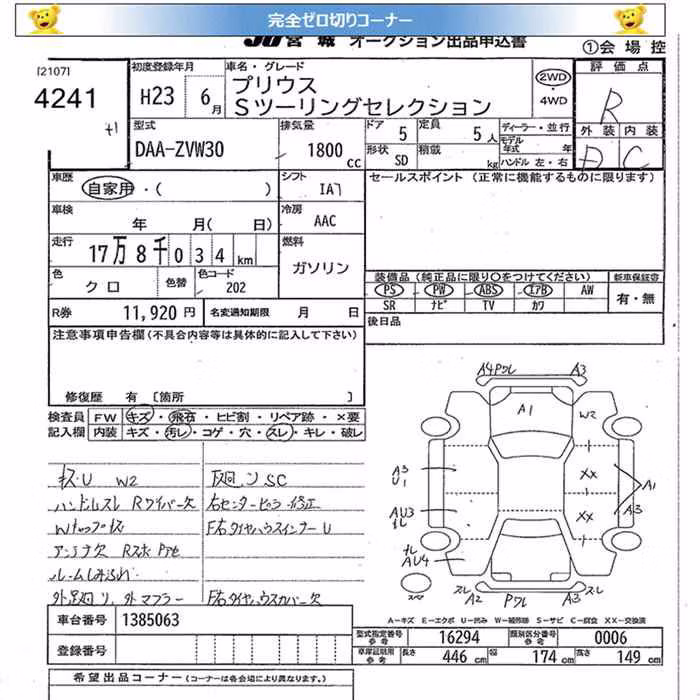 完全ゼロ切りコーナー
JU宮城 オークション出品申込書
①会場控
[2107]
4241
+1
初度登録年月
H23 6月
車名・グレード
プリウス
Sツーリングセレクション
2WD
・
4WD
評価点
R
外装 内装
D C
型式
DAA-ZVW30
排気量
1800 cc
ドア 5
定員 5人
形状 SD
積載 kg
ディーラー・並行
モデル年式 年
ハンドル 左・右
車歴
自家用・( )
シフト
IA7
セールスポイント (正常に機能するものに限ります)
車検
年 月( 日)
冷房
AAC
走行
17万8千034km
燃料
ガソリン
色
クロ
色替
色コード
202
装備品(純正品に限り○をつけてください)
新車保証書
PS PW ABS エアB AW
SR ナビ TV カワ
有・無
R券 11,920円
名変通知期限 月 日
後日品
注意事項申告欄(不具合内容等は具体的に記入して下さい)
修復歴 有 [箇所 ]
検査員記入欄
FW キズ・飛石・ヒビ割・リペア跡・×要
内装 キズ・汚レ・コゲ・穴・スレ・キレ・破レ
W2
ハンドルスレ Rワイパー欠
アンテナ欠
外廻り、外マフラー
右センターピラー修正
F右タイヤハウスインナーU
F右タイヤハウスカバー欠
A4 A3
A1
W2
A3
U1
XX
A1
AU3
XX
A3
AU4
スレ
A2
A3
スレ
A-キズ E-エクボ U-凹み W-補修跡 S-サビ C-腐食 XX-交換済
車台番号 1385063
登録番号
型式指定番号 参考 16294
類別区分番号 参考 0006
車庫証明用 参考 長さ 446cm 幅 174cm 高さ 149cm
希望出品コーナー(コーナーは各会場により異なります。)